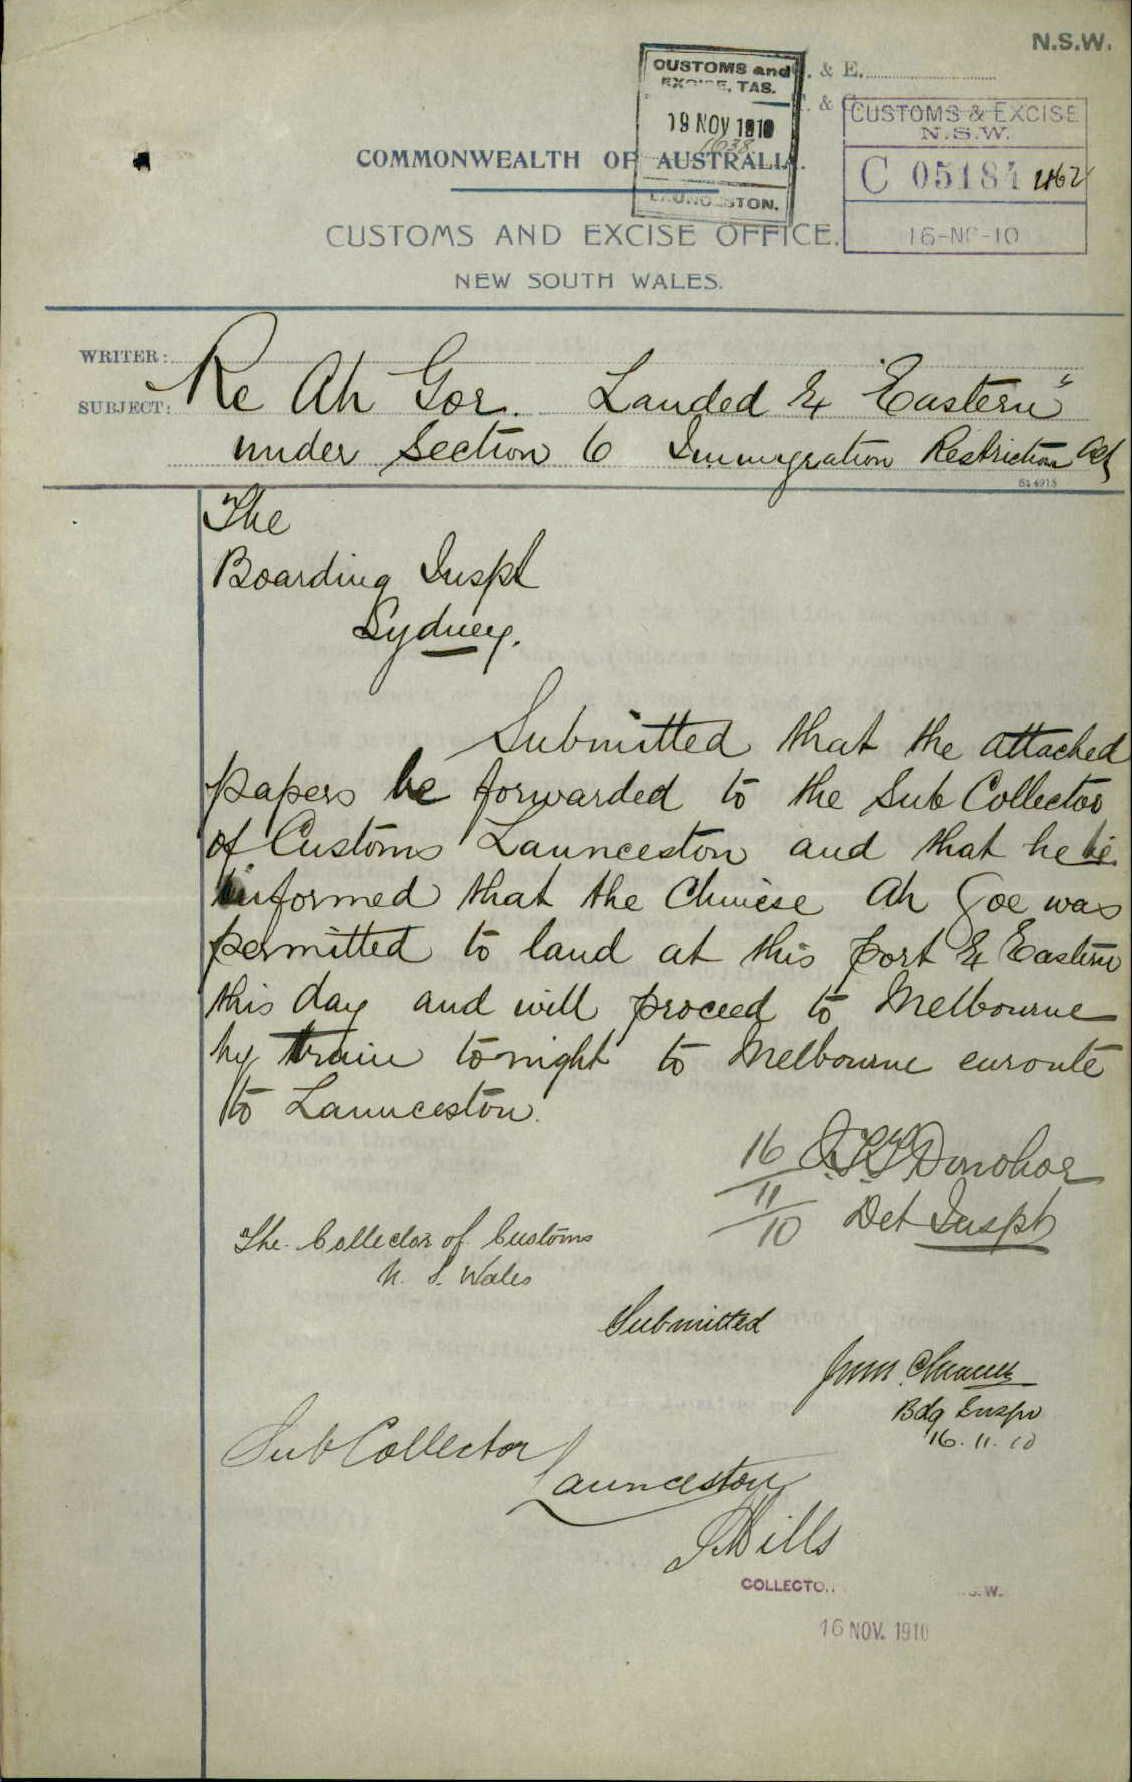 N.S.W.
CUSTOMS and
EXCISE, TAS.
19 NOV 1910
LAUNCESTON.
& E.
& C.
CUSTOMS & EXCISE
N.S.W.
C 05184
16-NO-10
COMMONWEALTH OF AUSTRALIA.
CUSTOMS AND EXCISE OFFICE.
NEW SOUTH WALES.
WRITER:
SUBJECT: Re Ah Goe. Landed Ex "Eastern"
under Section 6 Immigration Restriction Act
The
Boarding Inspt
Sydney.
Submitted that the attached
papers be forwarded to the Sub Collector
of Customs Launceston and that he be
informed that the Chinese Ah Goe was
permitted to land at this port Ex Eastern
this day and will proceed to Melbourne
by train tonight to Melbourne enroute
to Launceston.
16/11/10 Donohoe
Det Inspt
The Collector of Customs
N. S. Wales
Submitted
Bdg Inspr
16.11.10
Sub Collector
Launceston
Mills
COLLECTO W.
16 NOV. 1910